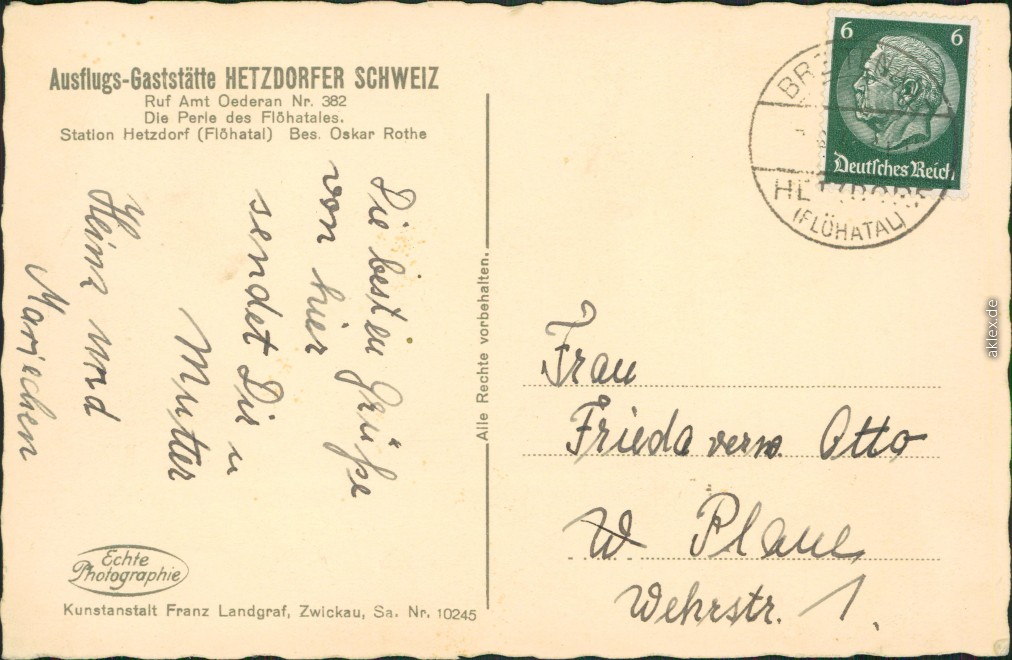 Ausflugs-Gaststätte HETZDORFER SCHWEIZ
Ruf Amt Oederan Nr. 382
Die Perle des Flöhatales.
Station Hetzdorf (Flöhatal) Bes. Oskar Rothe
Die besten Grüße
von hier
sendet Dir u
Mutter
Heinz und
Mariechen
Echte
Photographie
Kunstanstalt Franz Landgraf, Zwickau, Sa. Nr. 10245
Alle Rechte vorbehalten.
6 6
Deutsches Reich
HETZDORF
(FLÖHATAL)
Frau
Frieda verw. Otto
W Plaue
Wehrstr. 1.
aklex.de